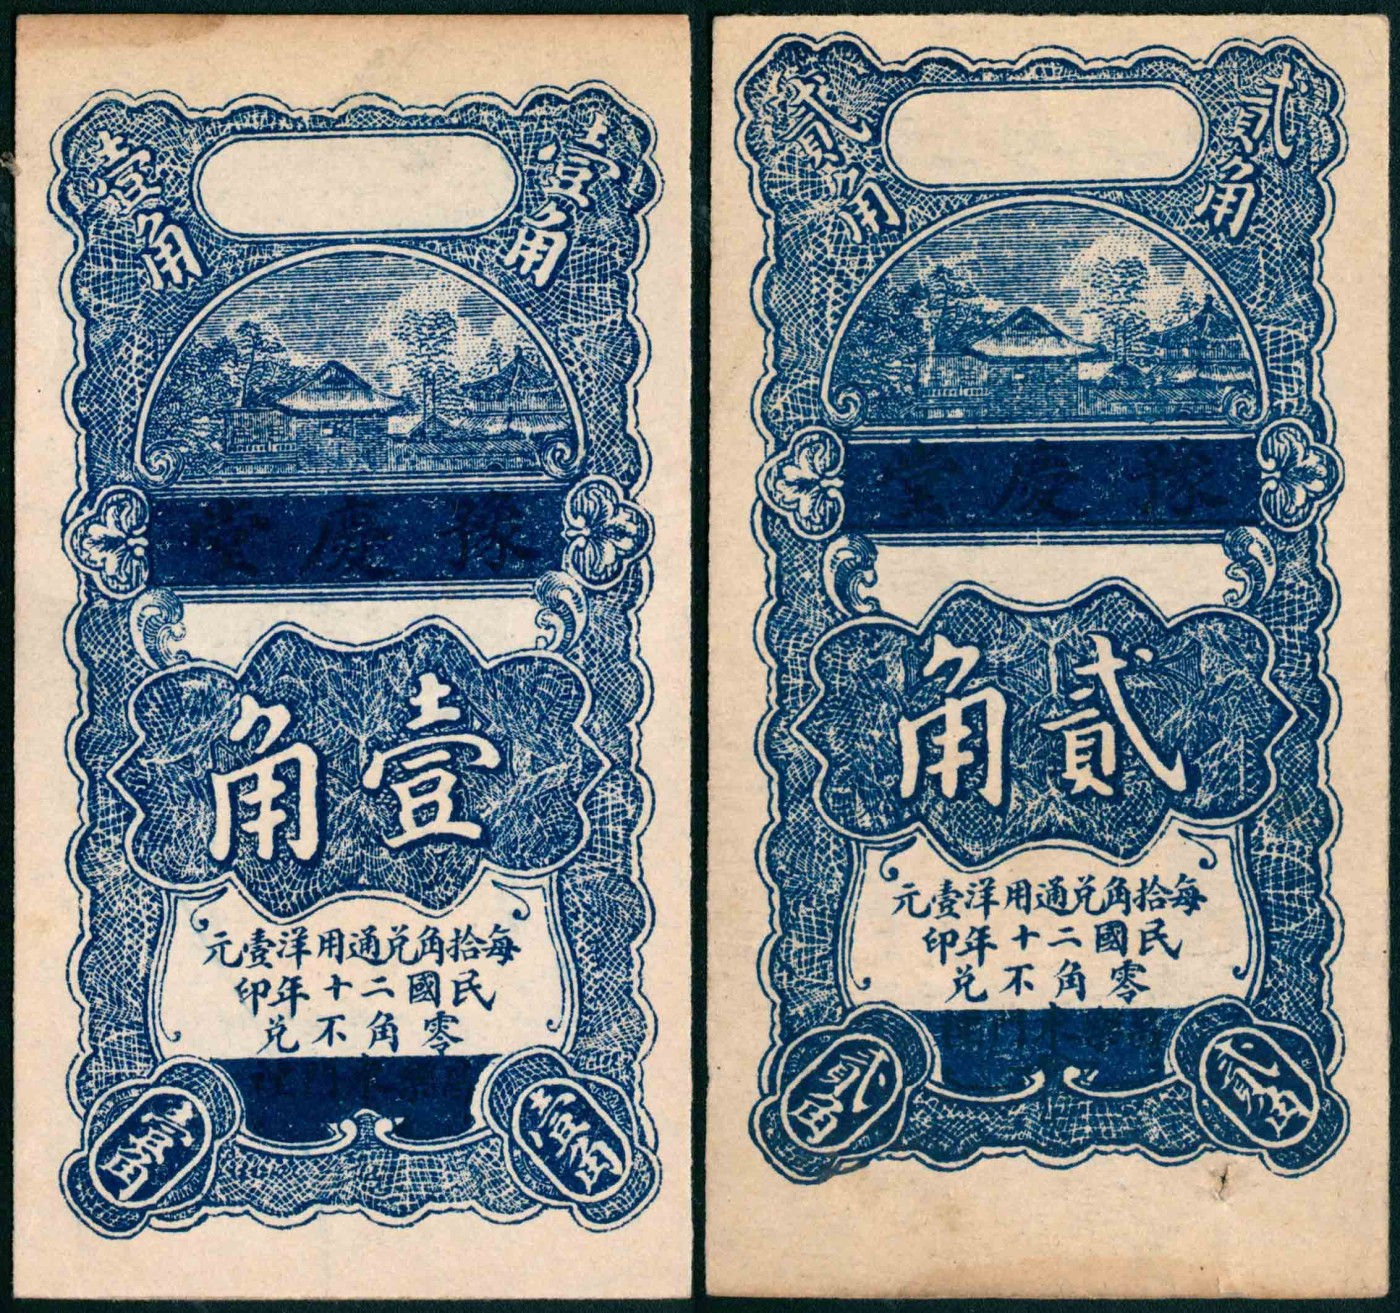 壹角
壹角
豫慶堂
壹角
每拾角兑通用洋壹元
民國二十年印
零角不兑
壹角
壹角
貳角
貳角
豫慶堂
貳角
每拾角兑通用洋壹元
民國二十年印
零角不兑
貳角
貳角